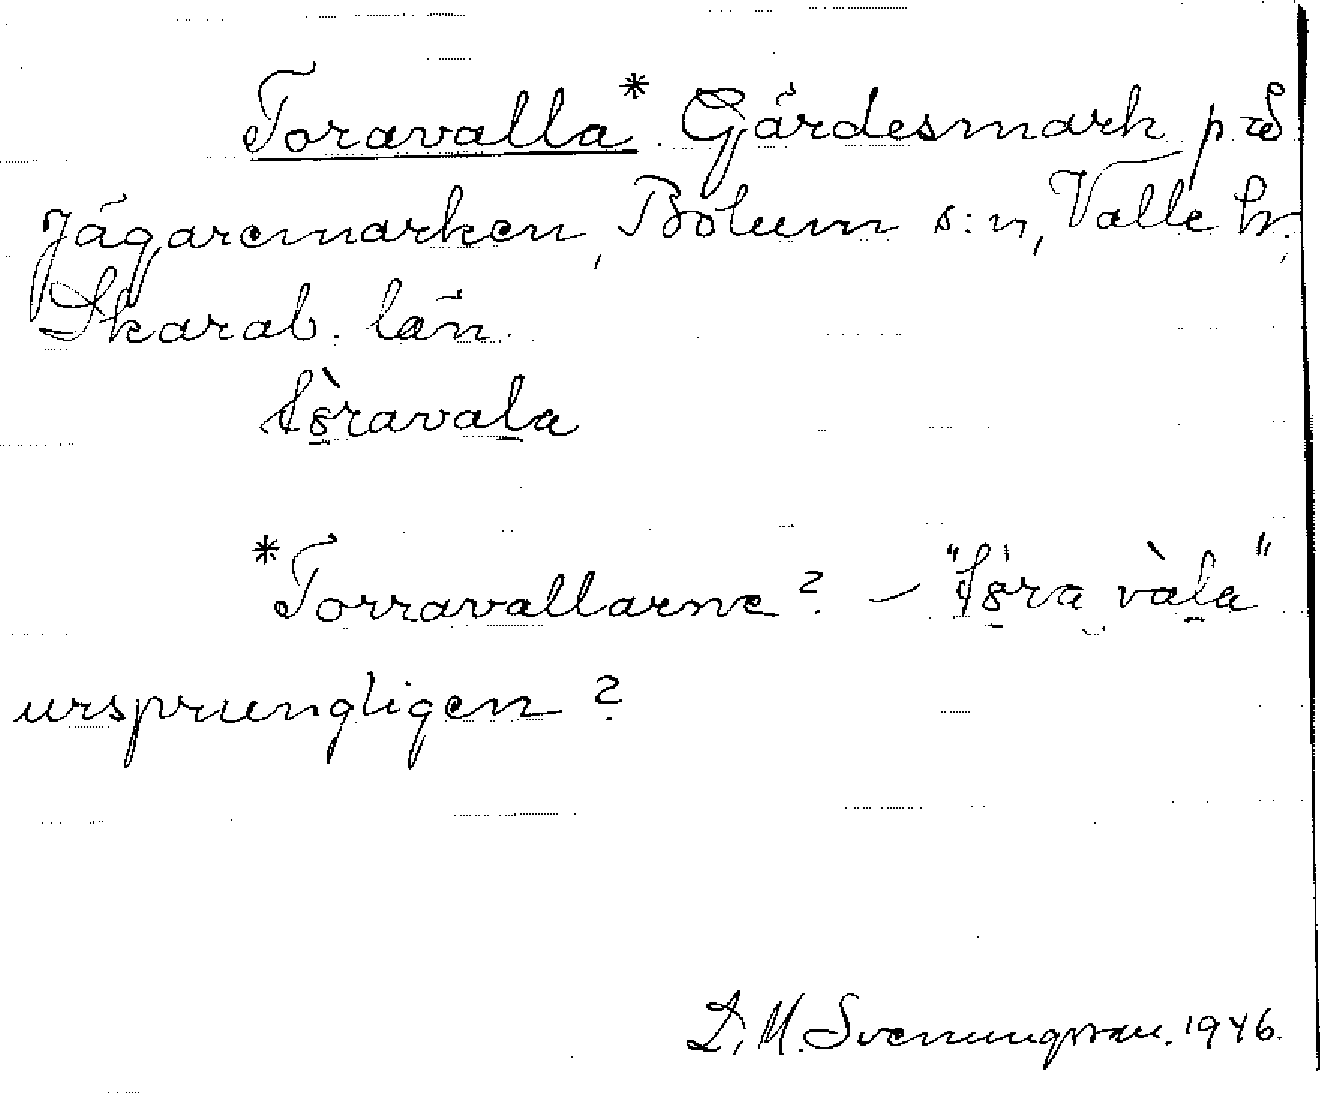 Toravalla*. Gärdesmark på
Jägaremarken, Bolum s:n, Valle hr.
Skarab. län.
*Torravallarne? –
ursprungligen?
D. M. Svenungsson. 1946.